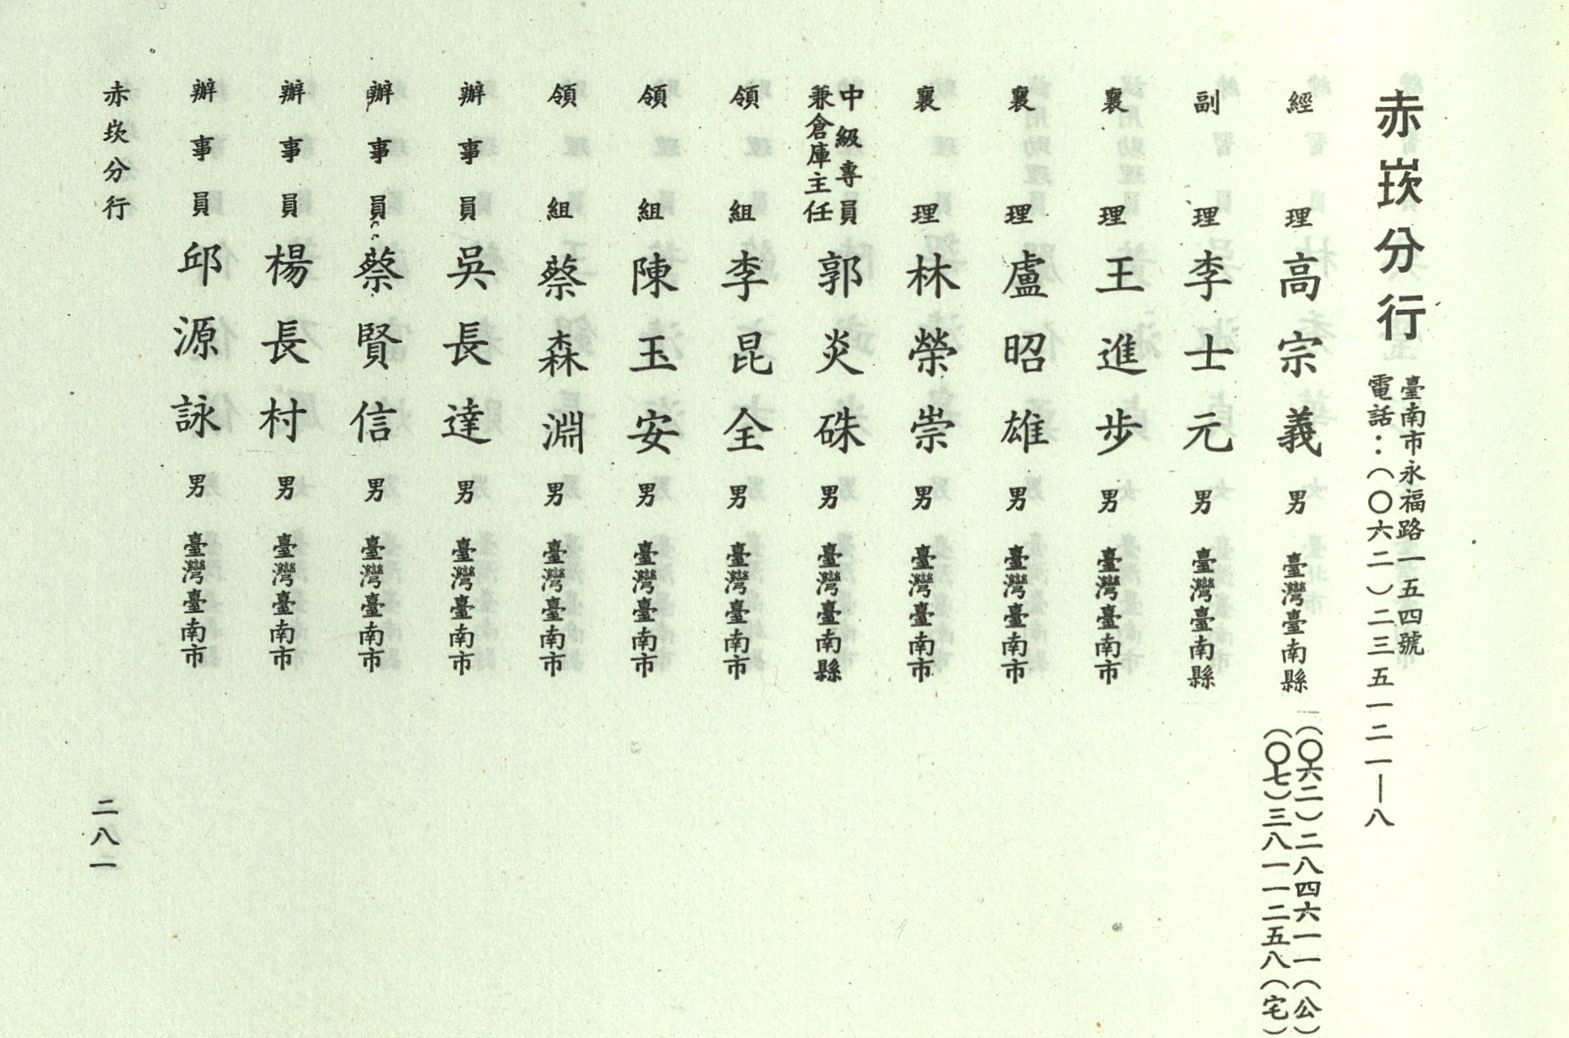 赤崁分行
臺南市永福路一五四號
電話：（〇六二）二三五一二一—八
經理 高宗義 男 臺灣臺南縣
（〇六二）二八四六一一（公）
（〇七）三八一一二五八（宅）
副理 李士元 男 臺灣臺南縣
襄理 王進步 男 臺灣臺南市
襄理 盧昭雄 男 臺灣臺南市
襄理 林榮崇 男 臺灣臺南市
中級專員
兼倉庫主任 郭炎硃 男 臺灣臺南縣
領組 李昆全 男 臺灣臺南市
領組 陳玉安 男 臺灣臺南市
領組 蔡森淵 男 臺灣臺南市
辦事員 吳長達 男 臺灣臺南市
辦事員 蔡賢信 男 臺灣臺南市
辦事員 楊長村 男 臺灣臺南市
辦事員 邱源詠 男 臺灣臺南市
赤崁分行
二八一